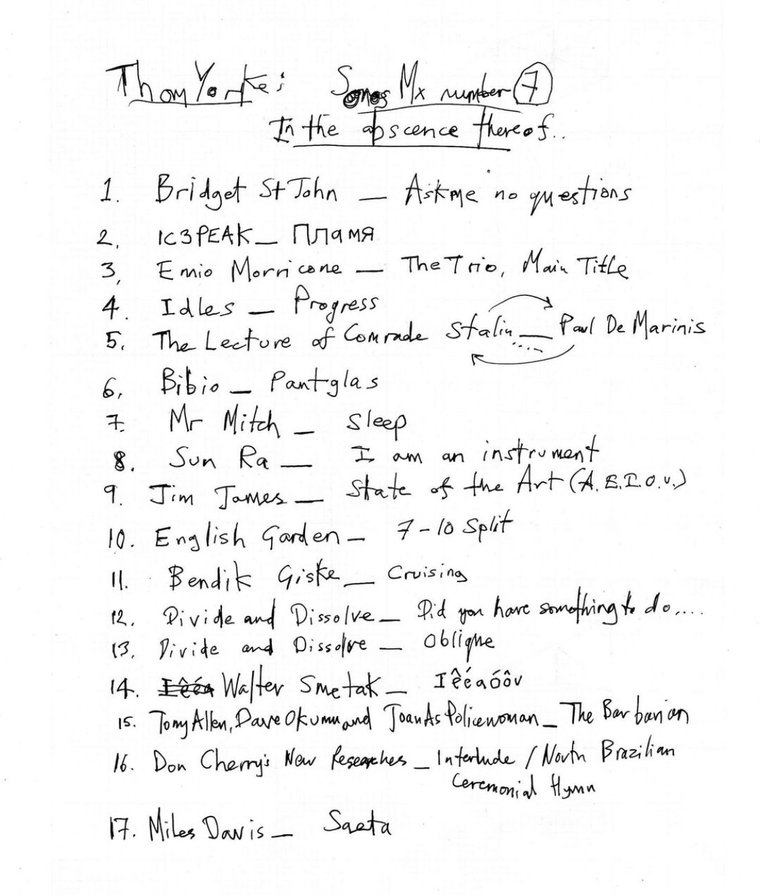 Thom Yorke: Songs Mx number 7
In the abscence thereof..
1. Bridget St John — Ask me no questions
2. IC3PEAK — Пламя
3, Emio Morricone — The Trio, Main Title
4. Idles — Progress
5. The Lecture of Comrade Stalin — Paul De Marinis
6, Bibio — Pantglas
7. Mr Mitch — Sleep
8. Sun Ra — I am an instrument
9. Jim James — State of the Art (A.E.I.O.U.)
10. English Garden — 7-10 Split
11. Bendik Giske — Cruising
12. Divide and Dissolve — Did you have something to do....
13. Divide and Dissolve — Oblique
14. Iêéa Walter Smetak — Iêéaóôv
15. Tony Allen, Dave Okumu and Joan As Policewoman — The Barbarian
16. Don Cherry's New Researches — Interlude / North Brazilian
Ceremonial Hymn
17. Miles Davis — Saeta